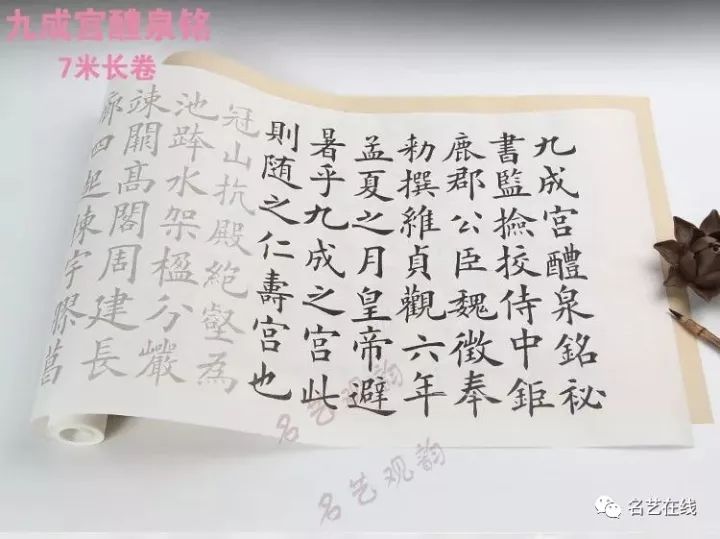 九成宫醴泉铭
7米长卷
九成宮醴泉銘祕
書監撿挍侍中鉅
鹿郡公臣魏徵奉
勑撰維貞觀六年
孟夏之月皇帝避
暑乎九成之宮此
則随之仁壽宮也
冠山抗殿絶壑為
池跨水架楹分巖
竦闕高閣周建長
廊四起棟宇膠葛
名艺观韵
名艺观韵
名艺在线